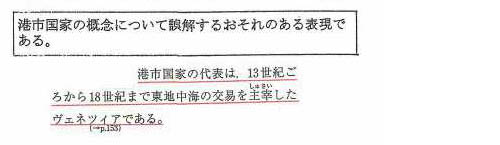 港市国家の概念について誤解するおそれのある表現で
ある。
港市国家の代表は，13世紀ご
ろから18世紀まで東地中海の交易を主宰した
しゅさい
ヴェネツィアである。
(→p.153)